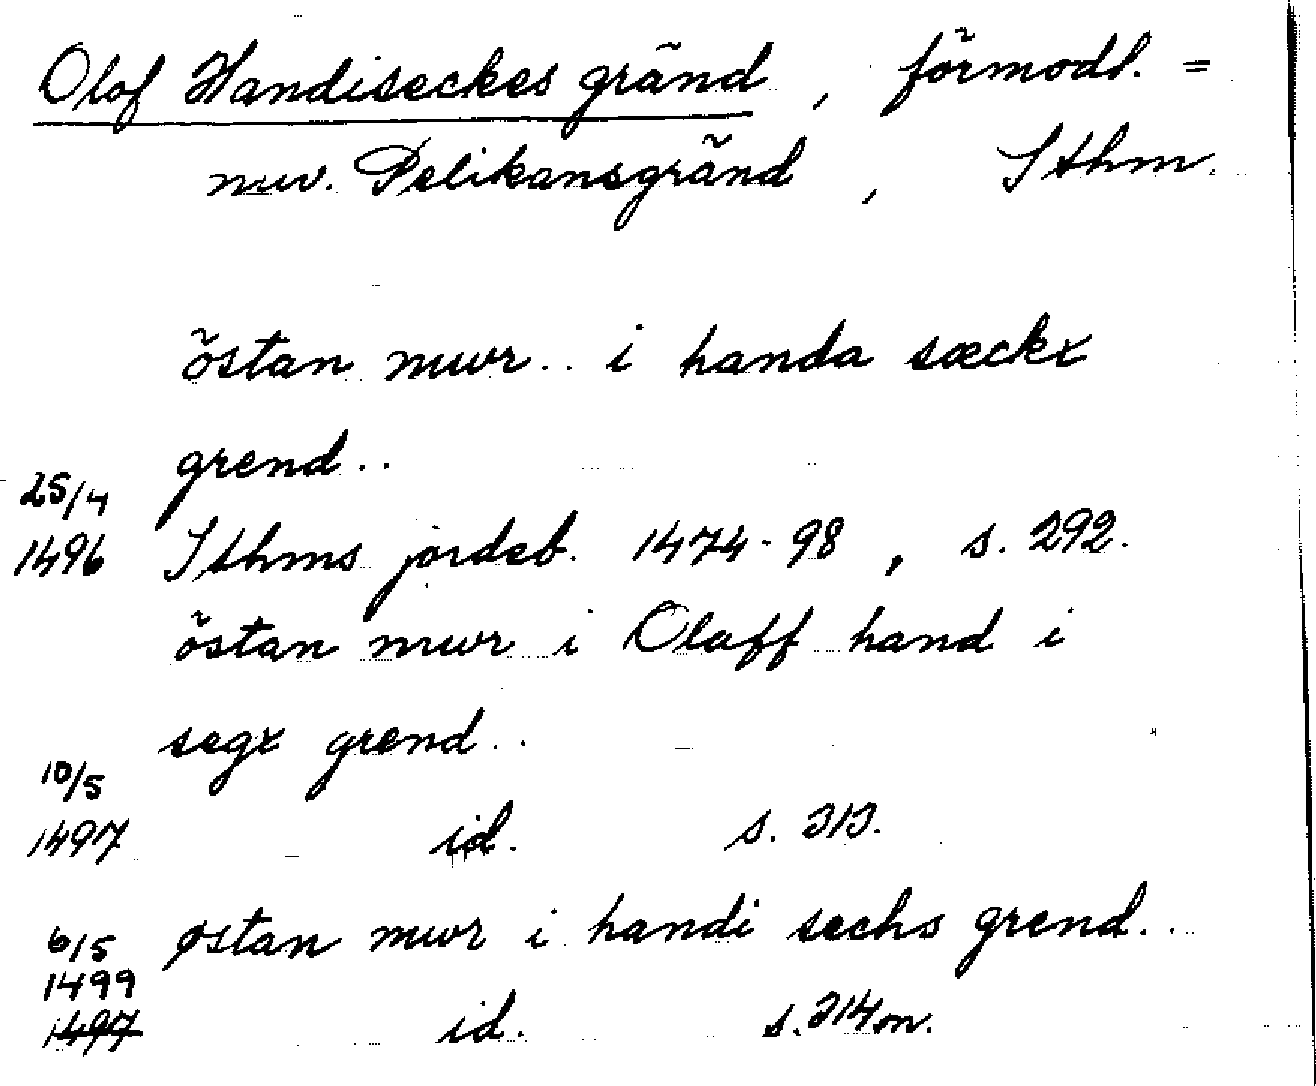 Olof Handiseckes gränd, förmodl. =
nuv. Pelikansgränd, Sthm.
östan mwr.. i handa sæckx
grend..
25/4
1496 Sthms jordeb. 1474-98, s. 292.
östan mwr i Olaff hand i
segx grend..
10/5
1497 id. s. 313.
6/5 østan mwr i handi sechs grend..
1499
1497 id. s. 314 m.